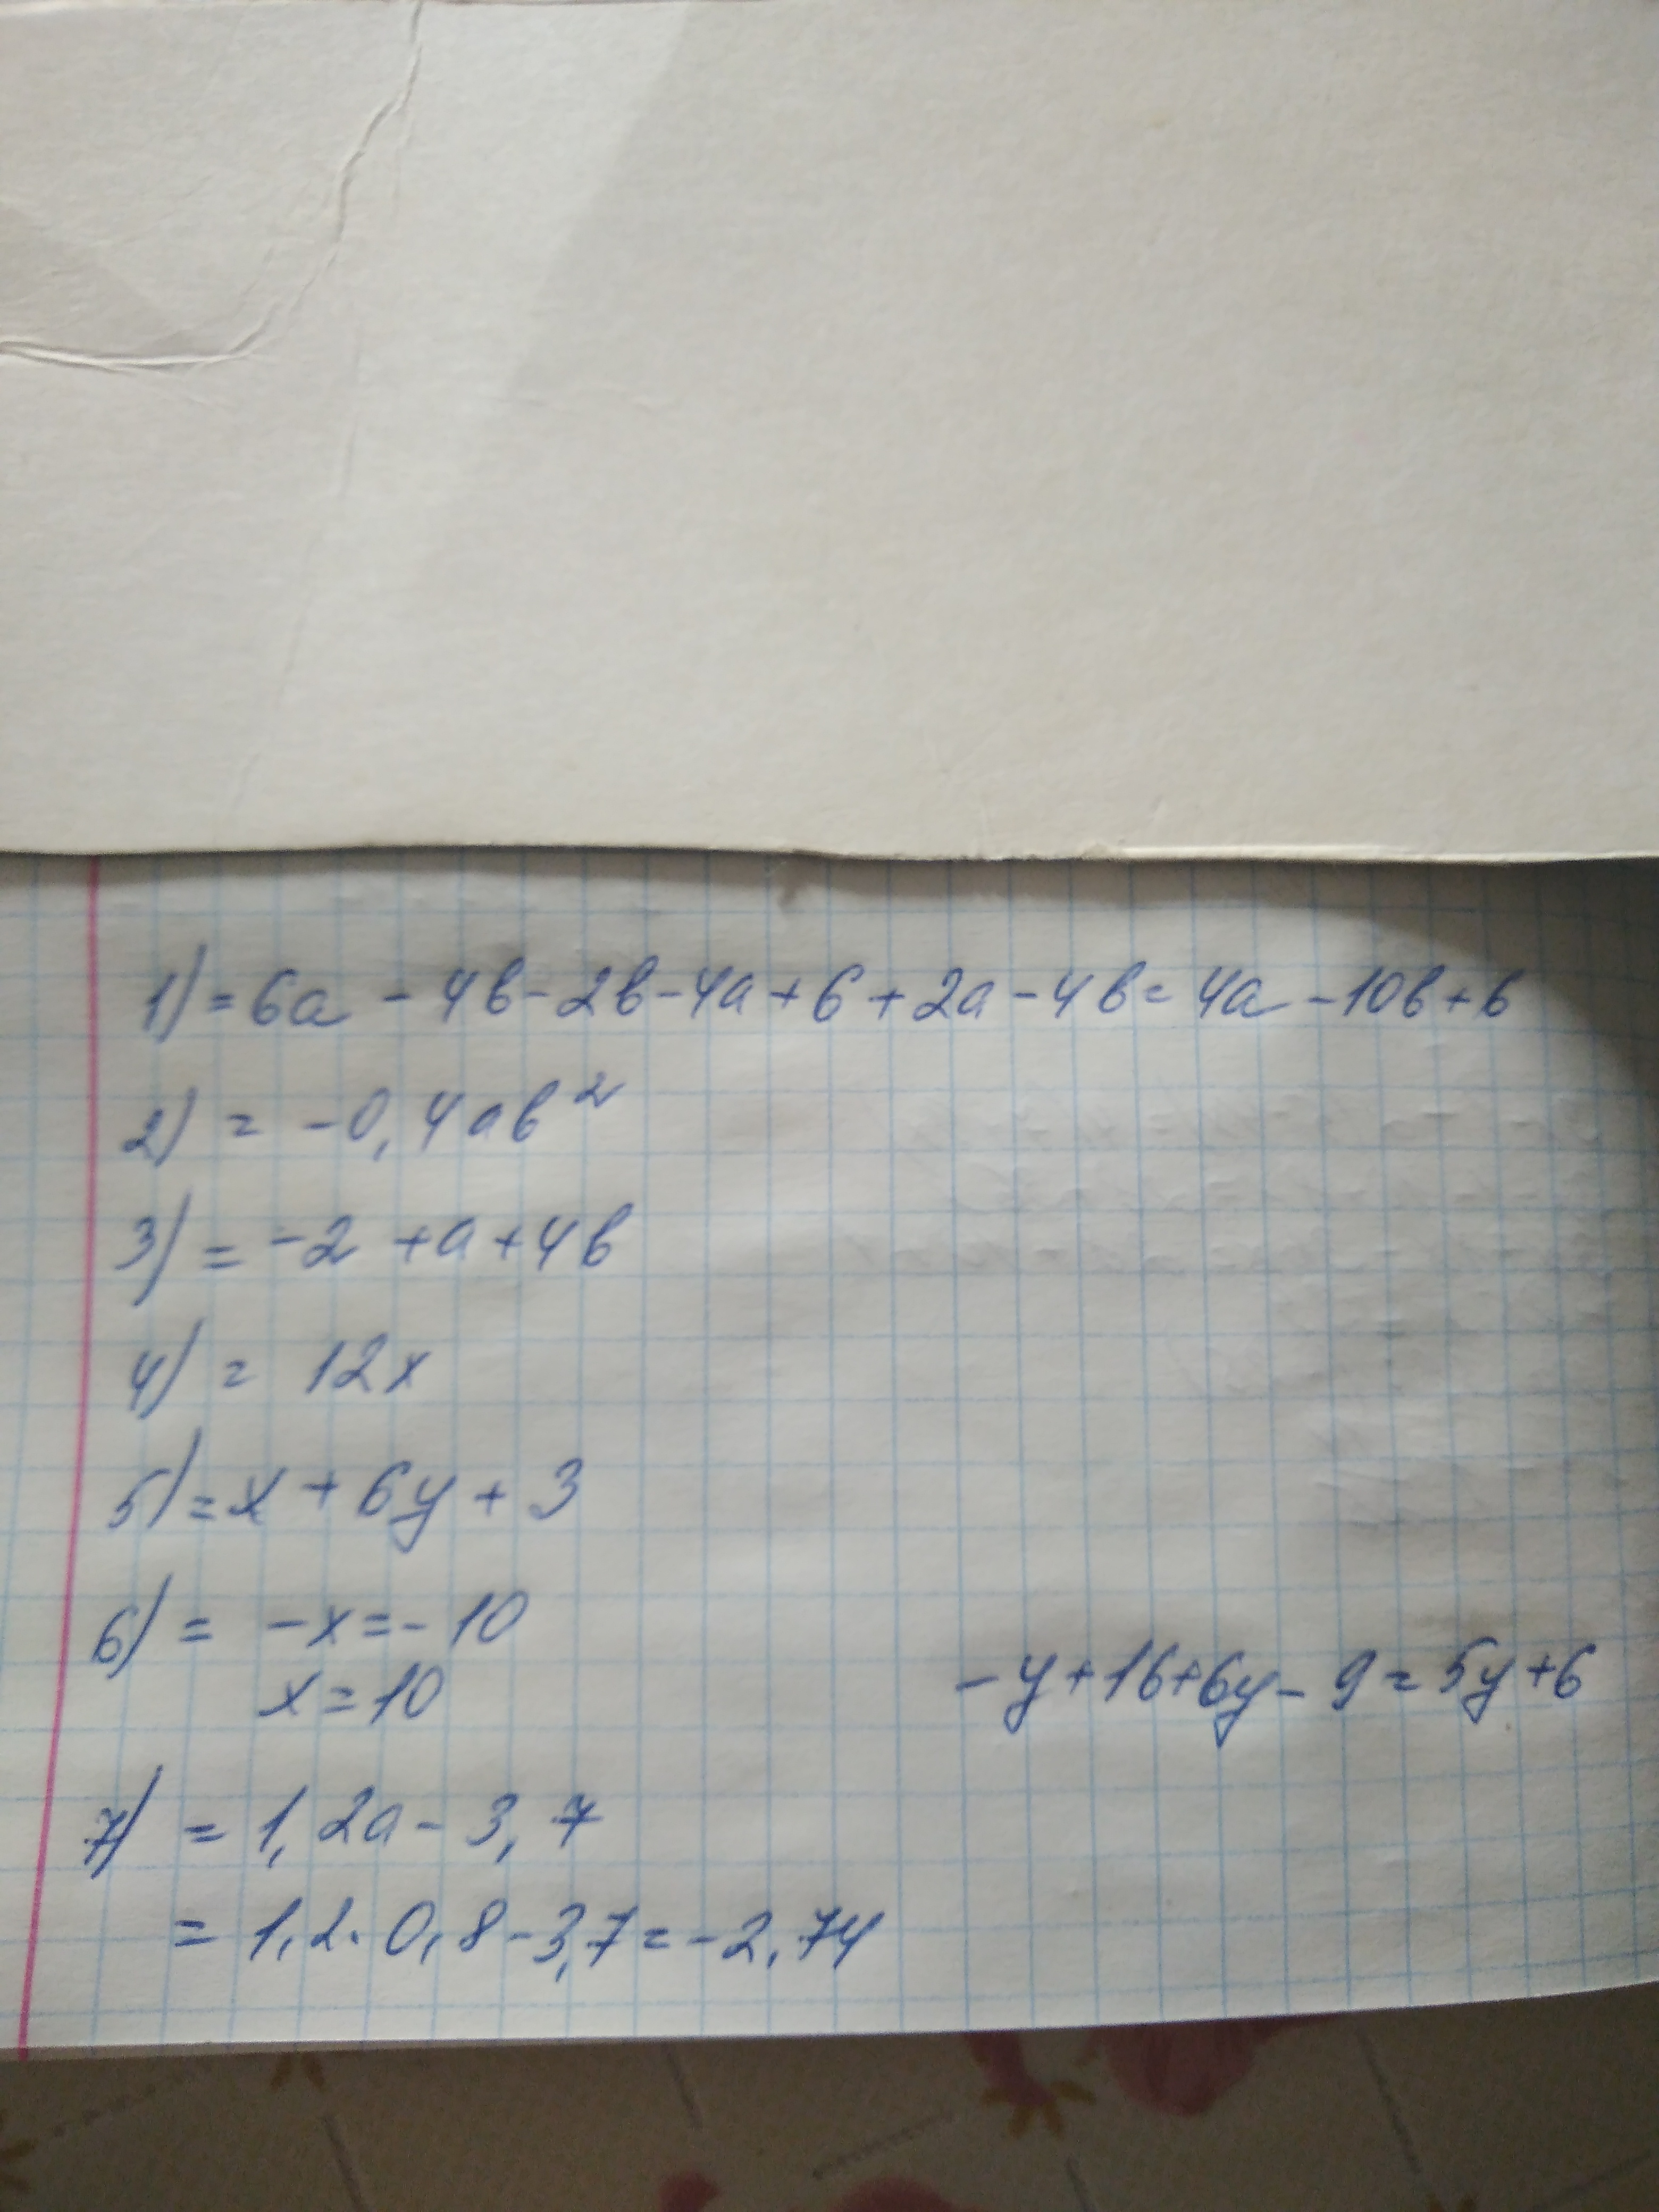 1) = 6a - 4b - 2b - 4a + 6 + 2a - 4b = 4a - 10b + 6
2) = -0,4ab²
3) = -2 + a + 4b
4) = 12x
5) = x + 6y + 3
6) = -x = -10
x = 10
-y + 16 + 6y - 9 = 5y + 6
7) = 1,2a - 3,7
= 1,2 · 0,8 - 3,7 = -2,74